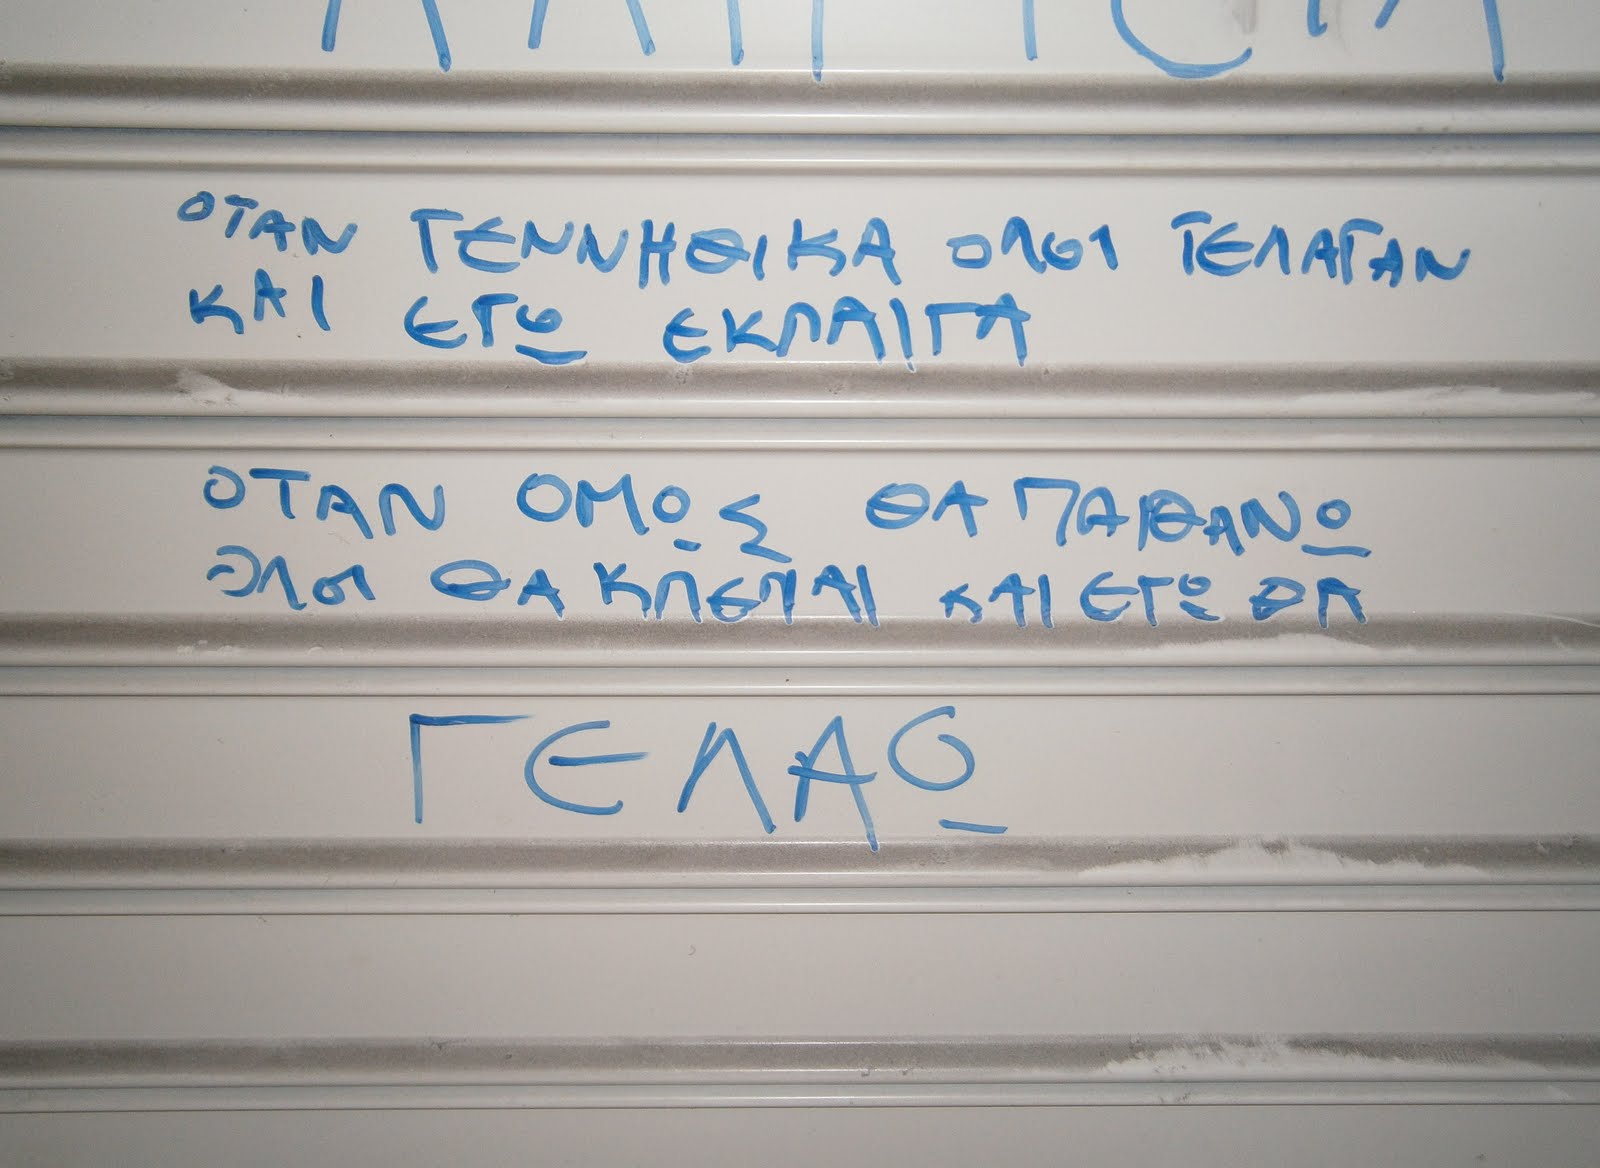 ΟΤΑΝ ΓΕΝΝΗΘΙΚΑ ΟΛΟΙ ΓΕΛΑΓΑΝ
ΚΑΙ ΕΓΩ ΕΚΛΑΙΓΑ
ΟΤΑΝ ΟΜΩΣ ΘΑ ΠΑΙΘΑΝΩ
ΟΛΟΙ ΘΑ ΚΛΕΝΑΙ ΚΑΙ ΕΓΩ ΘΑ
ΓΕΛΑΩ